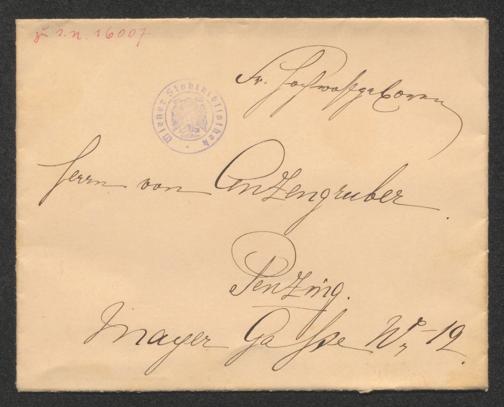 z I.N. 16007
Wiener Stadtbibliothek
Sr. Hochwohlgeboren
Herrn von Anzengruber.
Penzing.
Mayer Gasse Nr 12.